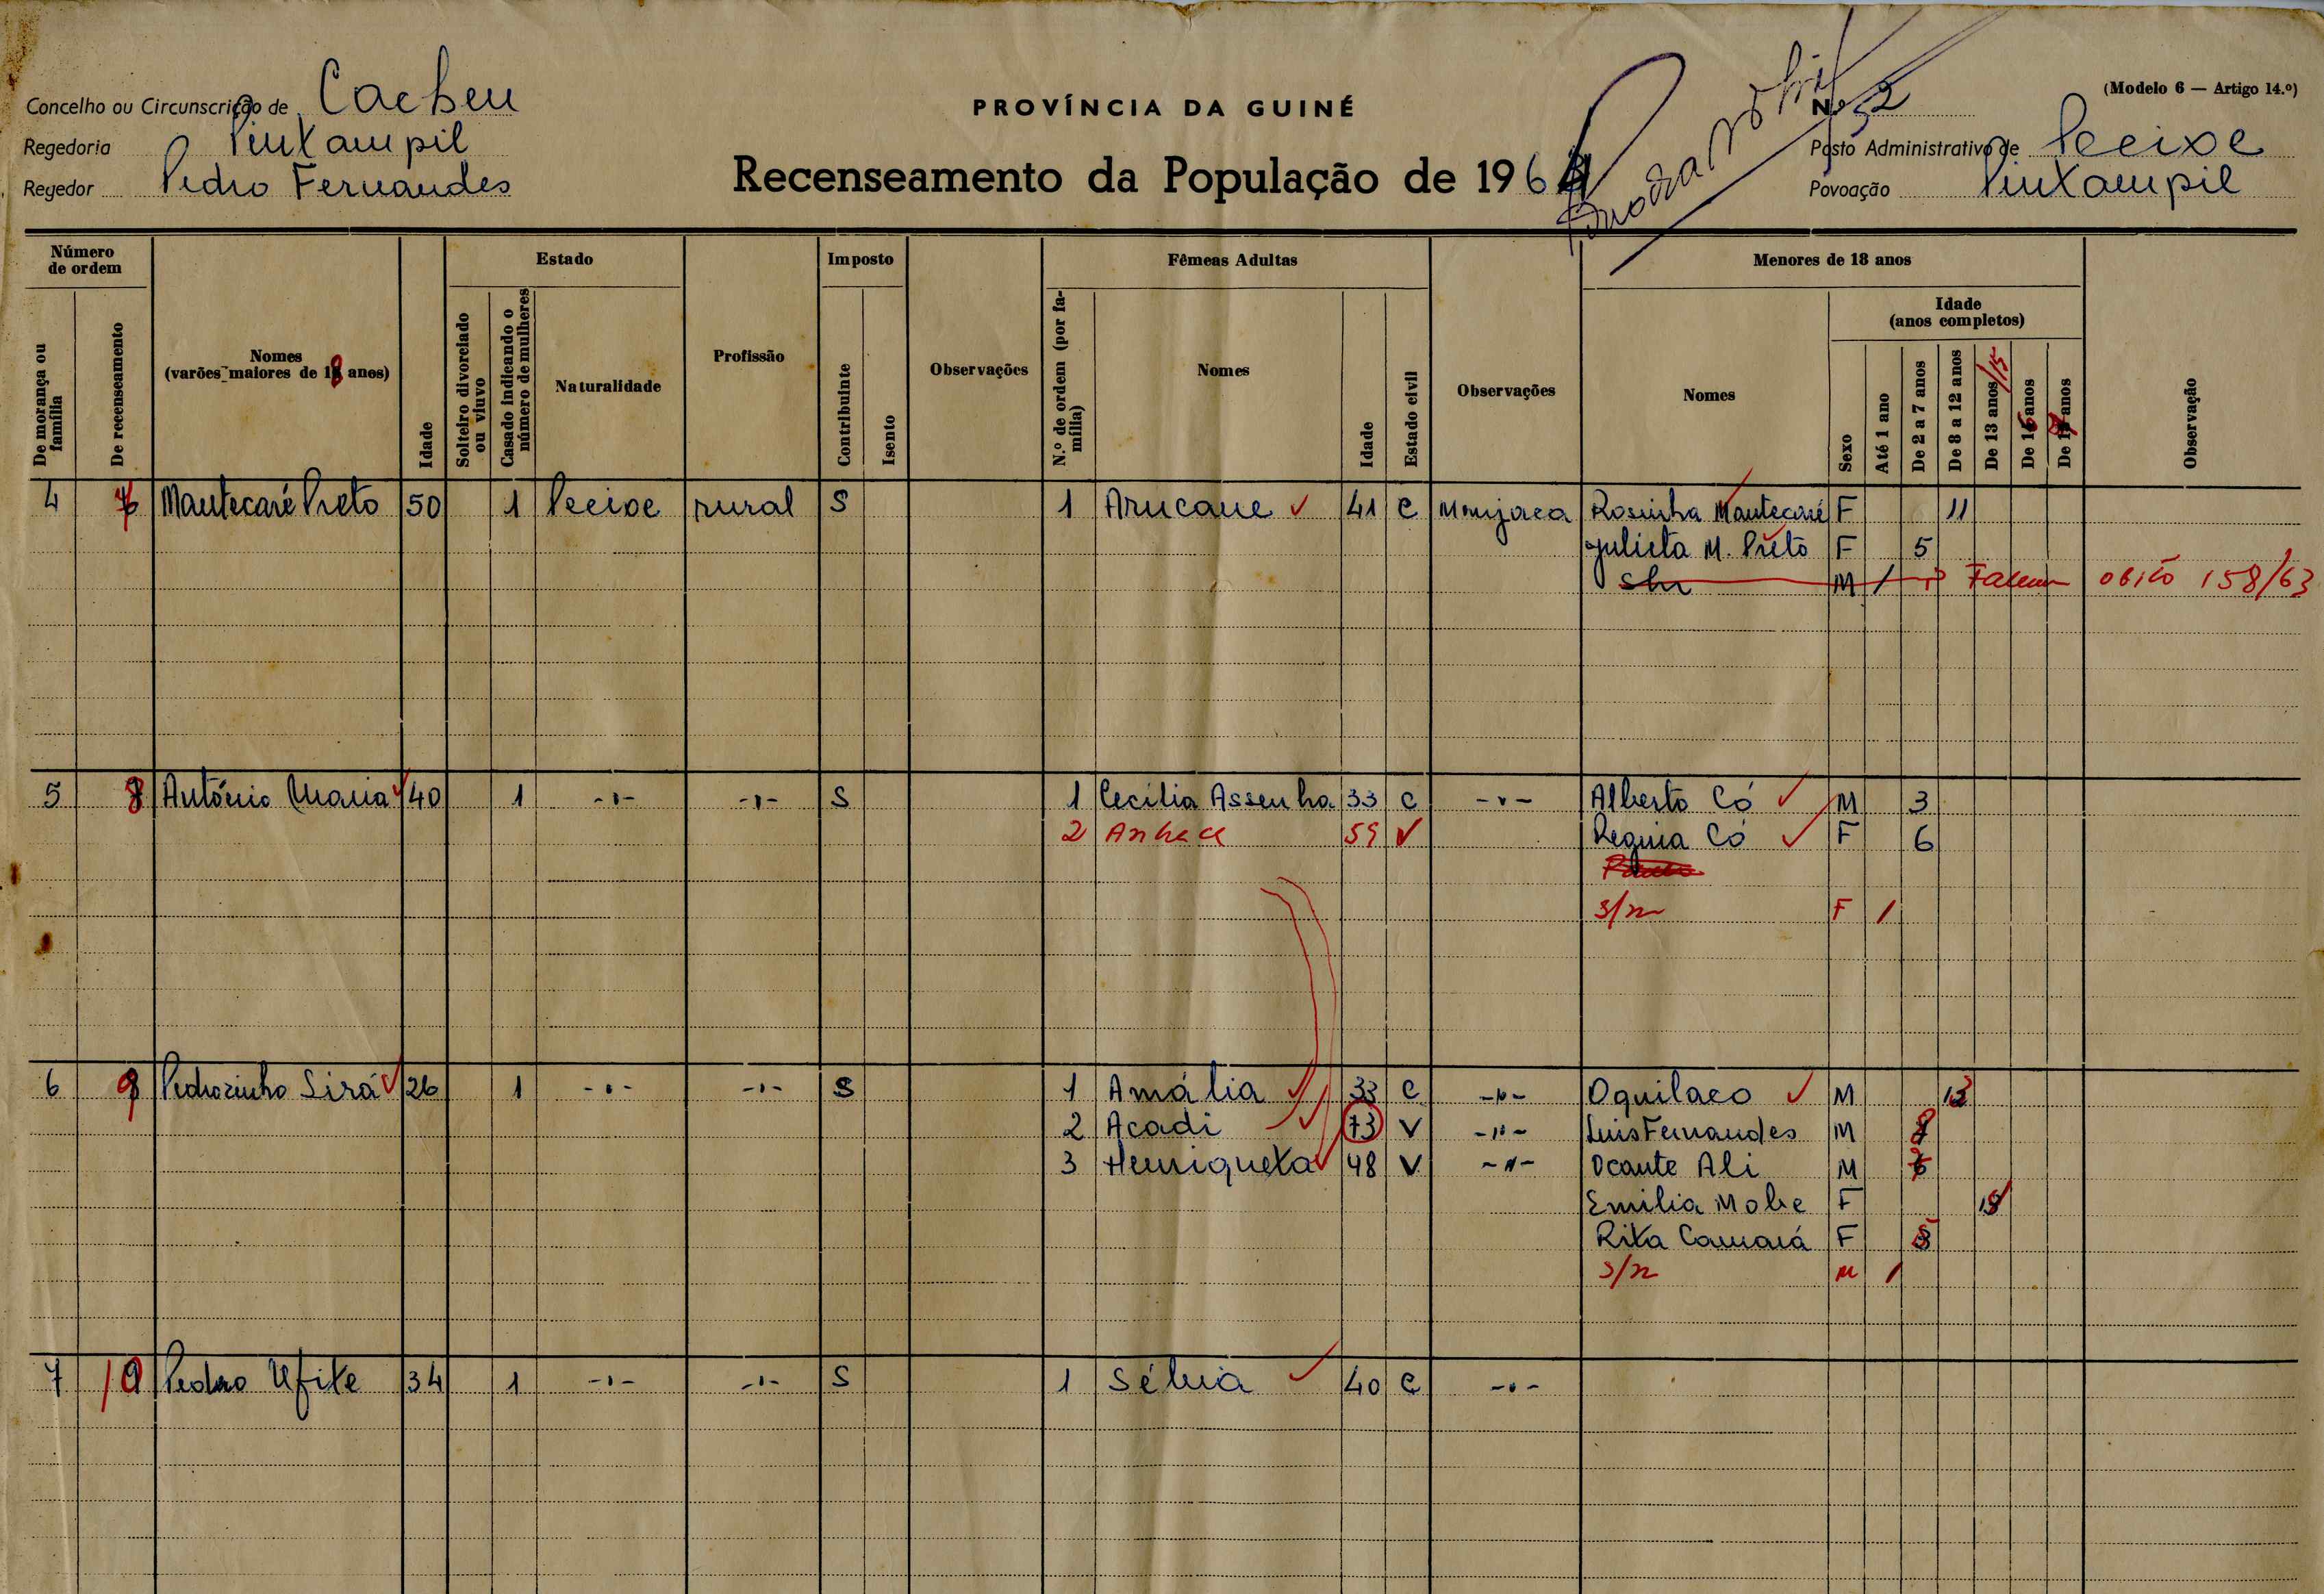 Concelho ou Circunscrição de Cacheu
PROVÍNCIA DA GUINÉ
(Modelo 6 — Artigo 14.º)
Regedoria Pintampil
Posto Administrativo de Pecixe
Regedor Pedro Fernandes
Recenseamento da População de 196
Povoação Pintampil
Número de ordem
De morança ou família
De recenseamento
Nomes
(varões maiores de 18 anos)
Idade
Estado
Solteiro divorciado ou viuvo
Casado indicando o número de mulheres
Naturalidade
Profissão
Imposto
Contribuinte
Isento
Observações
Fêmeas Adultas
N.º de ordem (por família)
Nomes
Idade
Estado civil
Observações
Menores de 18 anos
Nomes
Sexo
Idade
(anos completos)
Até 1 ano
De 2 a 7 anos
De 8 a 12 anos
De 13 anos/15
De 16 anos
De anos
Observação
4 Mantecaré Preto 50 1 Pecixe rural S 1 Arucane 41 C Manjaca Rosinha Mantecaré F 11
Julieta M. Preto F 5
M / Faleceu obito 158/63
5 8 António Maria 40 1 -"- -"- S 1 Cecília Assenha 33 C -"- Alberto Có M 3
2 59 V Regina Có F 6
s/n F 1
6 9 Pedrozinho Sirá 26 1 -"- -"- S 1 Amália 33 C -"- Oquilaco M 13
2 Acadi 73 V -"- Luis Fernandes M 8
3 Henriqueta 48 V -"- Ocante Ali M
Emilia Mobe F
Rita Camará F
s/n M 1
7 10 Pedro Ufite 34 1 -"- -"- S 1 Sélvia 40 C -"-